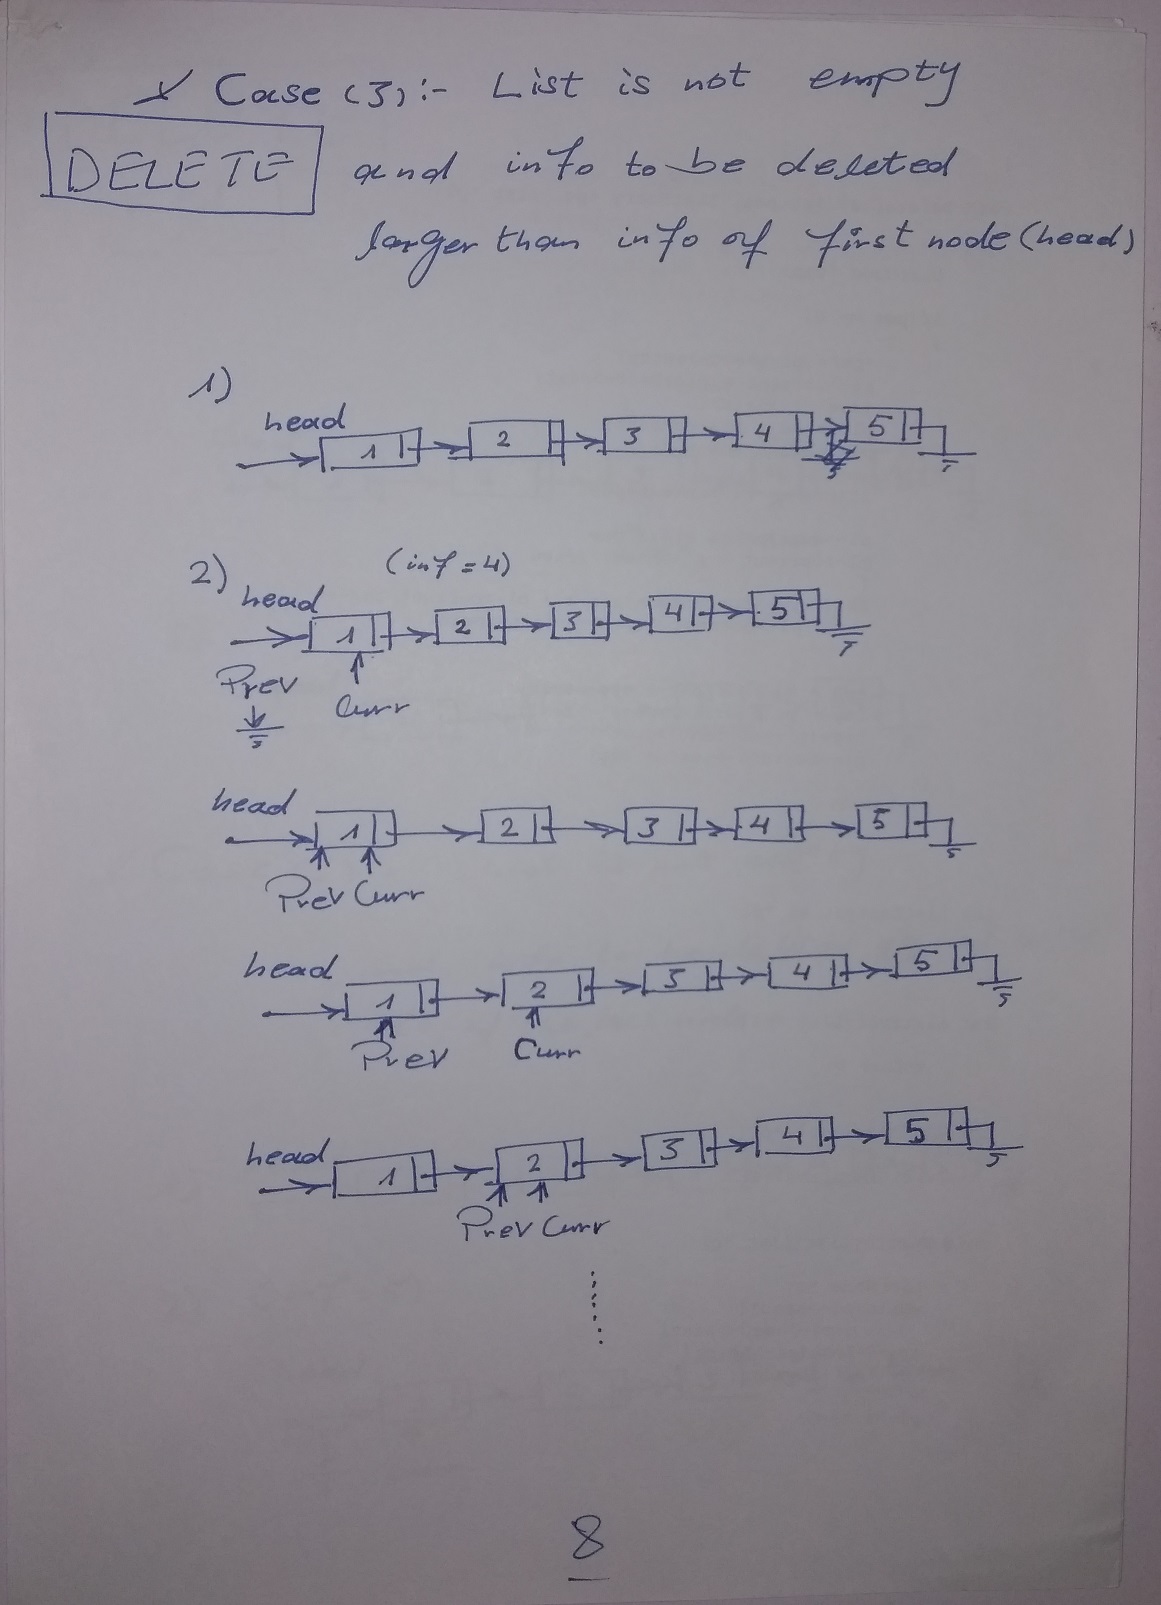 ✓ Case (3):- List is not empty
DELETE and info to be deleted
larger than info of first node (head)
1)
head
1 2 3 4 5
2) (inf = 4)
head
1 2 3 4 5
Prev Curr
head
1 2 3 4 5
Prev Curr
head
1 2 3 4 5
Prev Curr
head
1 2 3 4 5
Prev Curr
8